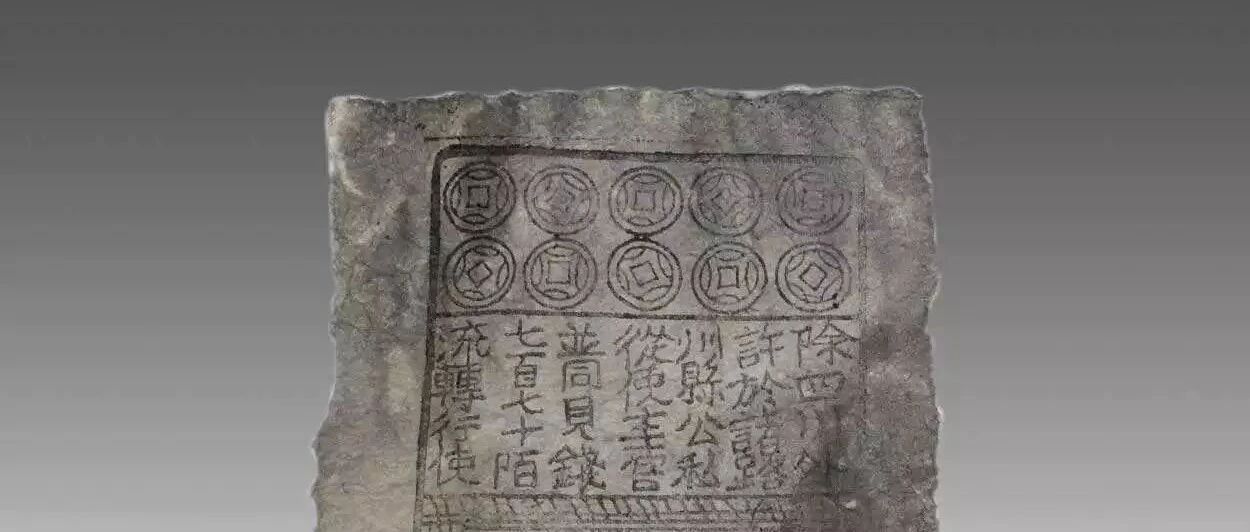 除四川
許於諸路
州縣公私
從便主管
並同見錢
七百七十陌
流轉行使